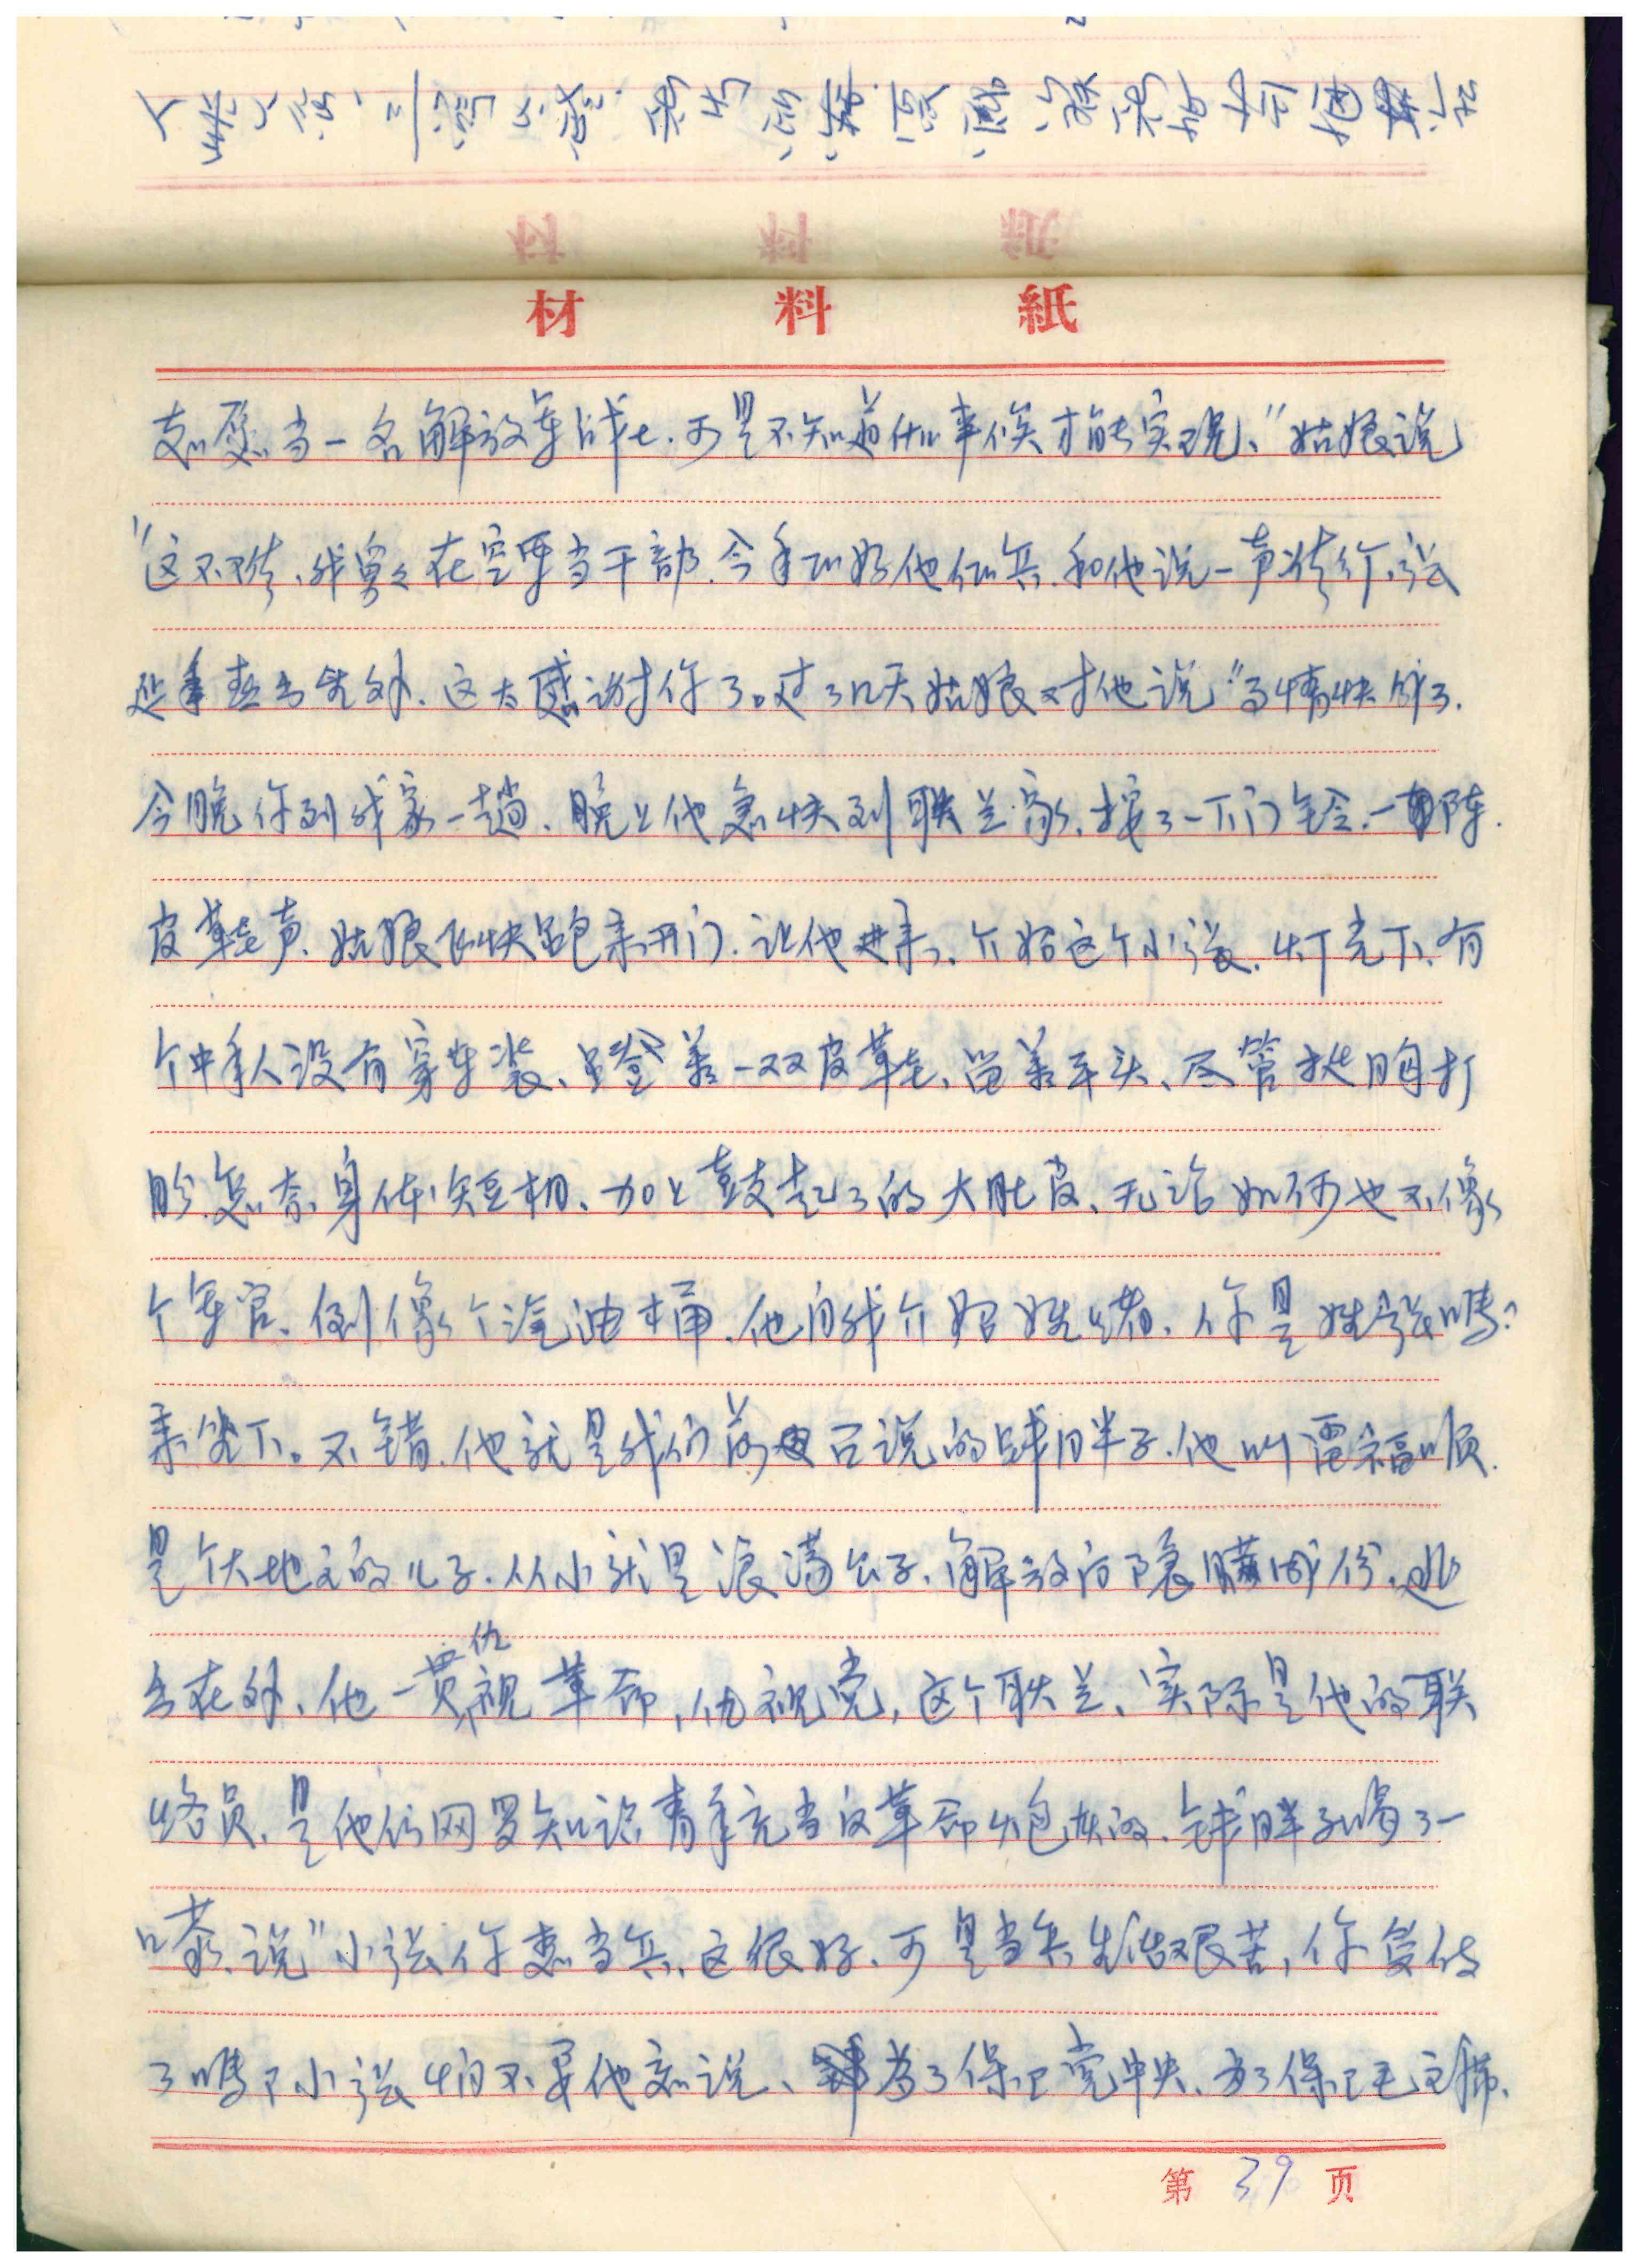 材料紙
志愿当一名解放军战士.可是不知道什么事候才能实现、"姑娘说
"这不难、我舅々在空军当干部.今年正好他们招兵.和他说一声
出外.这太感谢你了。过了几天姑娘对他说"事情快成了.
今晚你到我家一趟、晚上他急快到耿兰家、按了一下门铃、一阵.
皮鞋声、姑娘飞快跑来开门.让他进来、介绍这个小张、灯光下、有
个中年人没有穿军装、登着一双皮鞋、留着平头、尽管挺胸打
肚、怎奈身体短粗、加上鼓起了的大肚皮、无论如何也不像
个军官、倒像个汽油桶.他自我介绍姓褚、你是姓张吗?
来坐下。不错.他就是我们前文已说的胖子.他叫雷福顺.
是个大地主的儿子.从小就是浪荡公子、解放后隐瞒成份、逃
出在外、他一贯仇视革命,仇视党,这个耿兰、实际是他的联
络员、是他们网罗知识青年充当反革命炮灰的、钱胖子喝了一
口茶、说"小张你想当兵、这很好、可是当兵生活艰苦,你受的
了吗?小张怕不要他忙说、为了保卫党中央、为了保卫毛主席、
第39页